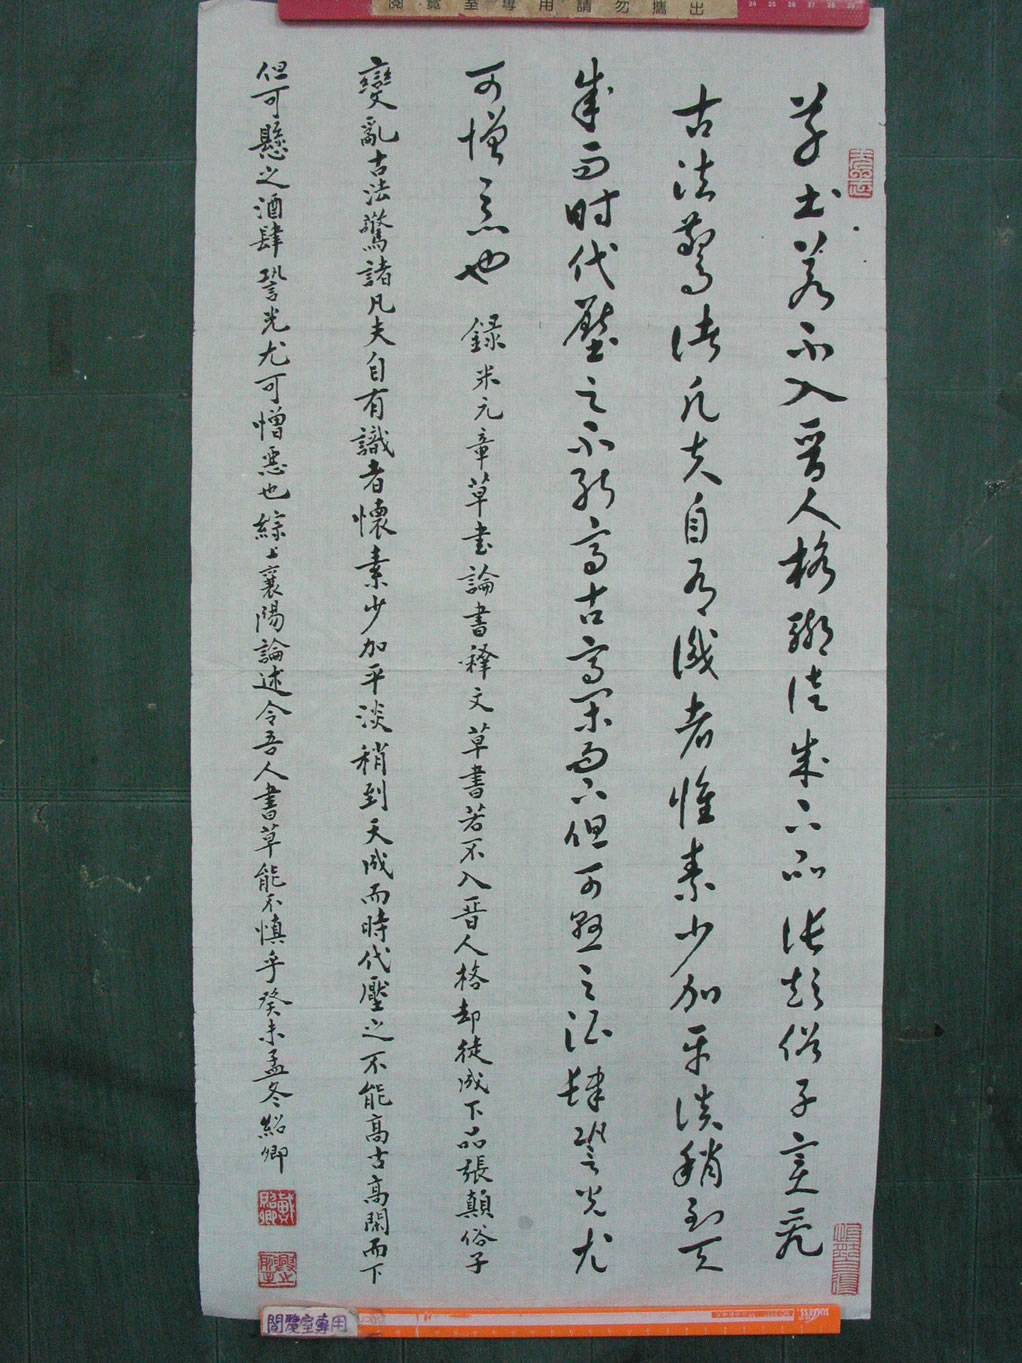 閱覽室專用請勿攜出
草书若不入晋人格聊徒成下品张颠俗子变乱
古法驚诸凡夫自有识者怀素少加平淡稍到天
成而时代壓之不能高古高闲而下但可悬之酒肆䛒光尤
可憎恶也 錄米元章草书論書释文草書若不入晉人格却徒成下品張顛俗子
變亂古法驚諸凡夫自有識者懷素少加平淡稍到天成而時代壓之不能高古高閑而下
但可懸之酒肆䛒光尤可憎惡也綜上襄陽論述令吾人書草能不慎乎癸未孟冬紹卿
閱覽室專用